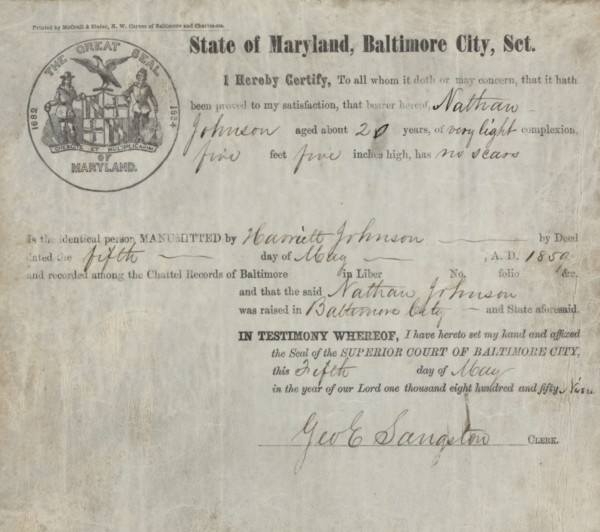 Printed by McCoull & Slater, N. W. Corner of Baltimore and Charles-sts.
State of Maryland, Baltimore City, Sct.
THE GREAT SEAL
1632 1854
CRESCITE ET MULTIPLICAMINI
OF
MARYLAND.
I Hereby Certify, To all whom it doth or may concern, that it hath
been proved to my satisfaction, that bearer hereof, Nathan
Johnson aged about 20 years, of very light complexion,
five feet five inches high, has no scars
Is the identical person MANUMITTED by Harriett Johnson by Deed
dated the fifth day of May, A. D. 1859
and recorded among the Chattel Records of Baltimore in Liber No. folio &c.
and that the said Nathan Johnson
was raised in Baltimore City and State aforesaid.
IN TESTIMONY WHEREOF, I have hereto set my hand and affixed
the Seal of the SUPERIOR COURT OF BALTIMORE CITY,
this Fifth day of May
in the year of our Lord one thousand eight hundred and fifty Nine
Geo E Sangston CLERK.